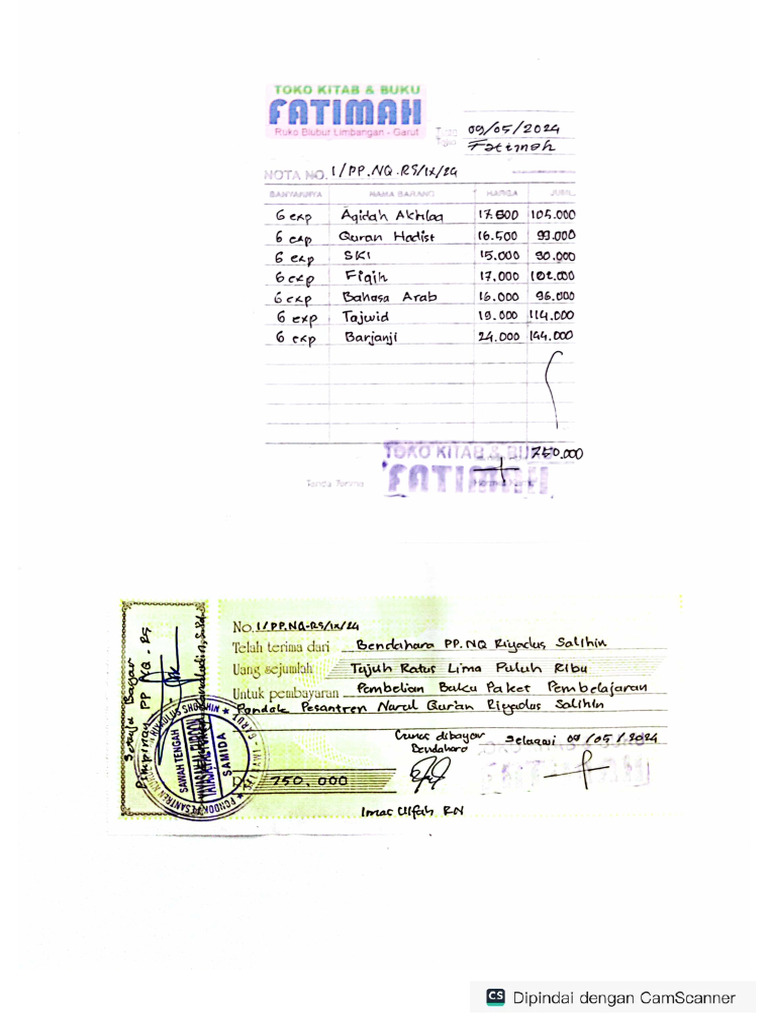 TOKO KITAB & BUKU
FATIMAH
Ruko Blubur Limbangan - Garut
09/05/2024
Fatimah
NOTA NO. 1/PP.NQ.RS/IX/24
BANYAKNYA NAMA BARANG HARGA JUML
6 exp Aqidah Akhlaq 17.500 105.000
6 exp Quran Hadist 16.500 99.000
6 exp SKI 15.000 90.000
6 exp Fiqih 17.000 102.000
6 exp Bahasa Arab 16.000 96.000
6 exp Tajwid 19.000 114.000
6 exp Barjanji 24.000 144.000
750.000
TOKO KITAB & BUKU
FATIMAH
Tanda Terima
No. 1/PP.NQ-RS/IX/24
Telah terima dari Bendahara PP.NQ Riyadus Salihin
Uang sejumlah Tujuh Ratus Lima Puluh Ribu
Untuk pembayaran Pembelian Buku Paket Pembelajaran
Pondok Pesantren Nurul Qur'an Riyadus Salihin
Lunas dibayar
Bendahara
Selaawi 09/05/2024
750.000
Imas Ulfah RN
Setuju Bayar
Pimpinan PP NQ. RS
SAWAH TENGAH
SAMIDA
CS Dipindai dengan CamScanner